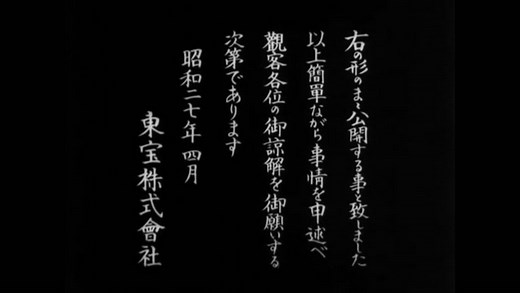 右の形のまゝ公開する事と致しました
以上簡單ながら事情を申述べ
觀客各位の御諒解を御願いする
次第であります
昭和二七年四月
東宝株式會社